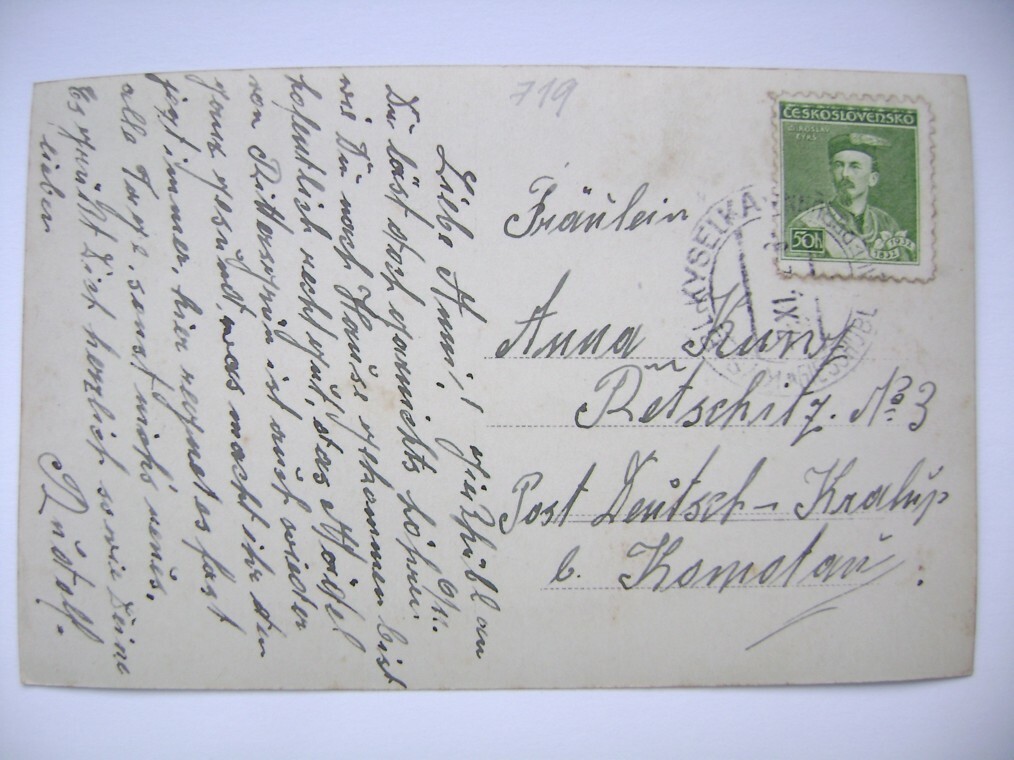 719
ČESKOSLOVENSKO
MIROSLAV
TYRŠ
50h
1932
1832
KYSELKA
XI.
Fräulein
Anna Kunz
in
Retschitz. No 3
Post Deutsch-Kralup
b. Komotau.
Gießhübl am
Liebe Anni! 6/11.
Du läst doch garnichts hören
wie Du nach Hause gekommen bist
hofentlich recht gut, das Mädel
von Rittersgrün ist auch wieder
ganz gesund, was macht ihr den
jezt immer, hier regnet es fast
alle Tage, sonst nichts neues.
Es grüßt Dich herzlich sowie Deine
lieben
Rudolf.